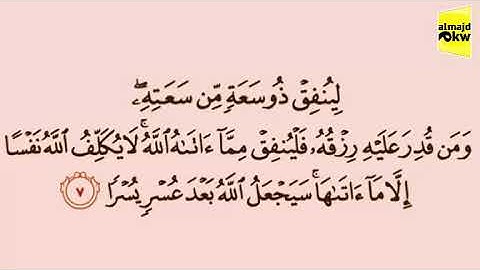 almajd
okw
لِيُنفِقْ ذُو سَعَةٍ مِّن سَعَتِهِۦۖ
وَمَن قُدِرَ عَلَيْهِ رِزْقُهُۥ فَلْيُنفِقْ مِمَّآ ءَاتَىٰهُ ٱللَّهُۚ لَا يُكَلِّفُ ٱللَّهُ نَفْسًا
إِلَّا مَآ ءَاتَىٰهَاۚ سَيَجْعَلُ ٱللَّهُ بَعْدَ عُسْرٍ يُسْرًا ٧